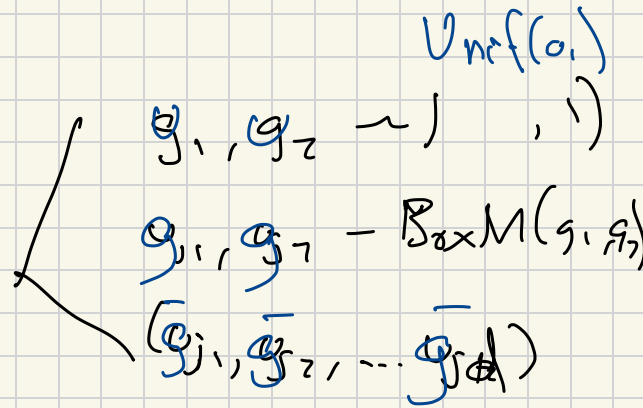 Unif(0,)
g₁, g₂ ~ ( , )
g₁, g₂ – BoxM(g₁, g₂)
(g̅j₁, g̅j₂, ... g̅jd)